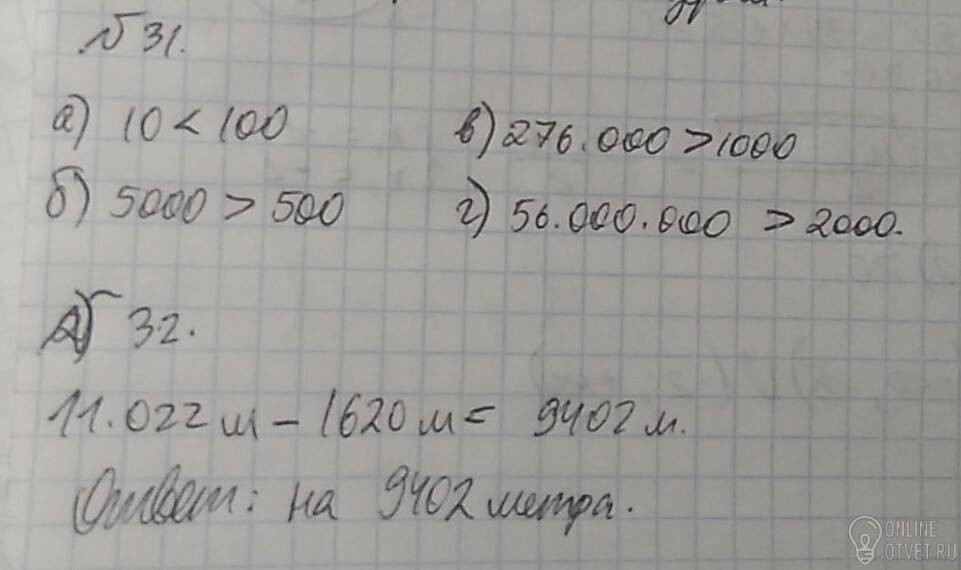 № 31.
а) 10 < 100
в) 276.000 > 1000
б) 5000 > 500
г) 56.000.000 > 2000.
№ 32.
11.022 м – 1620 м = 9402 м.
Ответ: на 9402 метра.
ONLINE
OTVET.RU